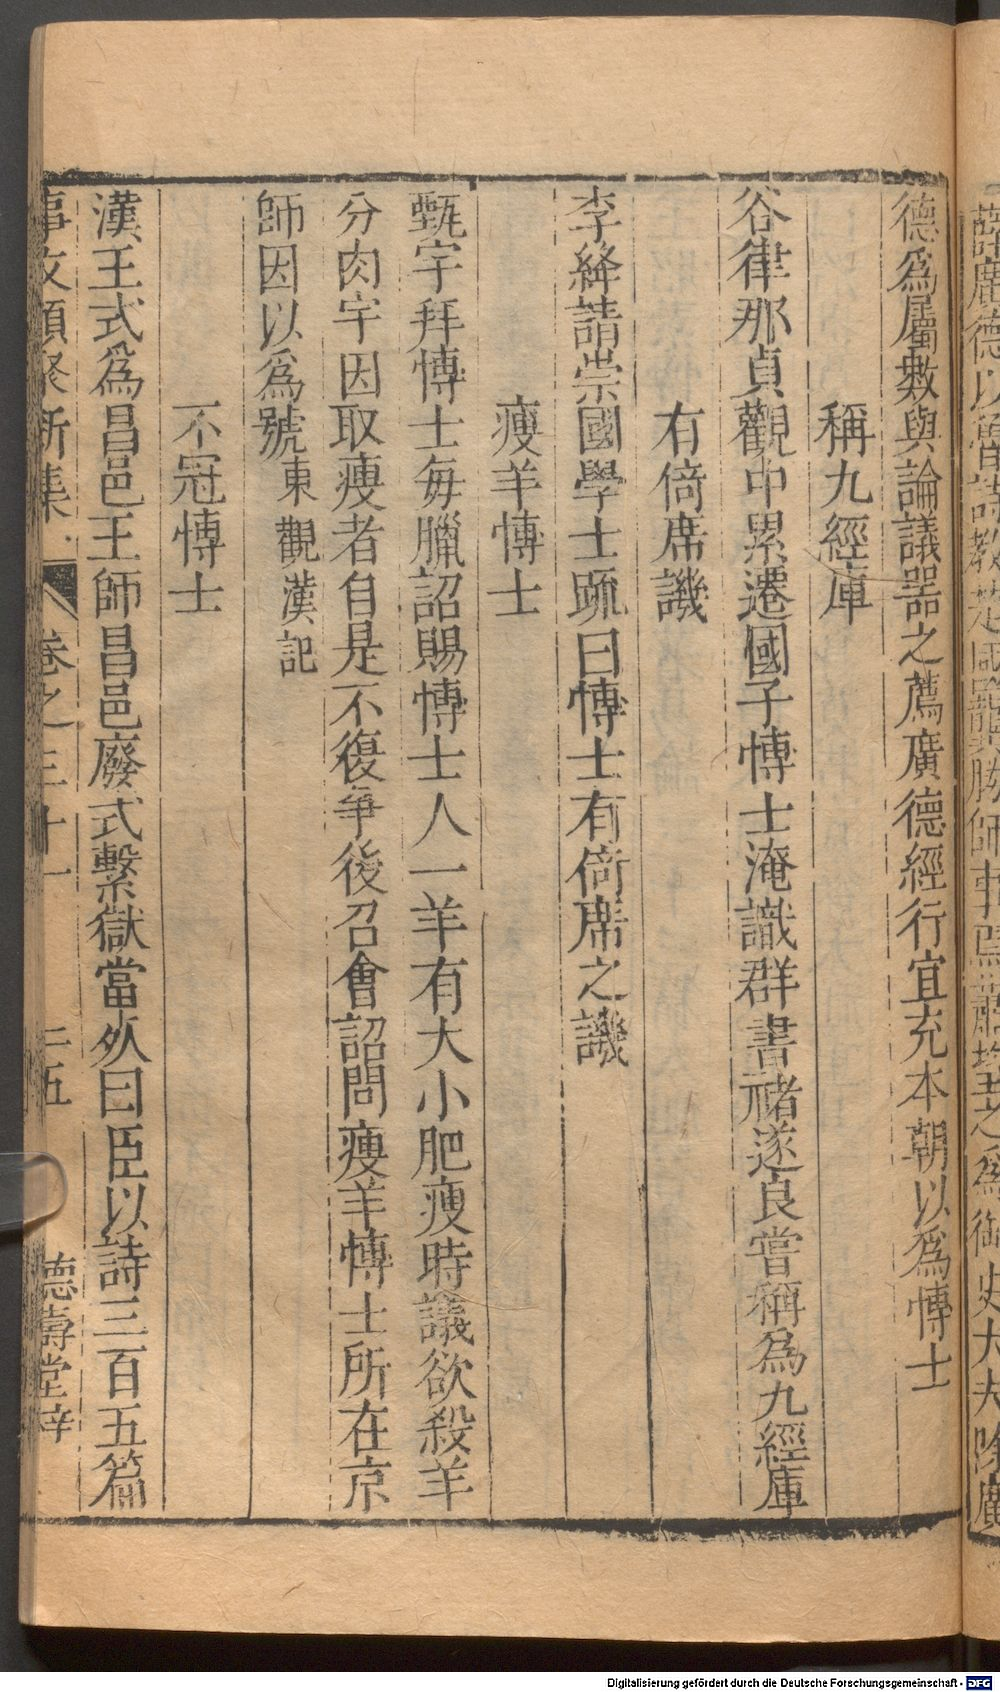 德爲屬數與論議器之薦廣德經行宜充本朝以爲愽士
稱九經庫
谷律那貞觀中累遷國子愽士淹識群書禇遂良嘗稱爲九經庫
有倚席譏
李絳請崇國學士䟽曰愽士有倚席之譏
瘦羊愽士
甄宇拜愽士每臘詔賜愽士人一羊有大小肥瘦時議欲殺羊
分肉宇因取瘦者自是不復爭後召會詔問瘦羊愽士所在京
師因以爲號東觀漢記
不冠愽士
漢王式爲昌邑王師昌邑廢式繫獄當死曰臣以詩三百五篇
事文類聚新集 卷之三十一 二五 德壽堂梓
Digitalisierung gefördert durch die Deutsche Forschungsgemeinschaft - DFG